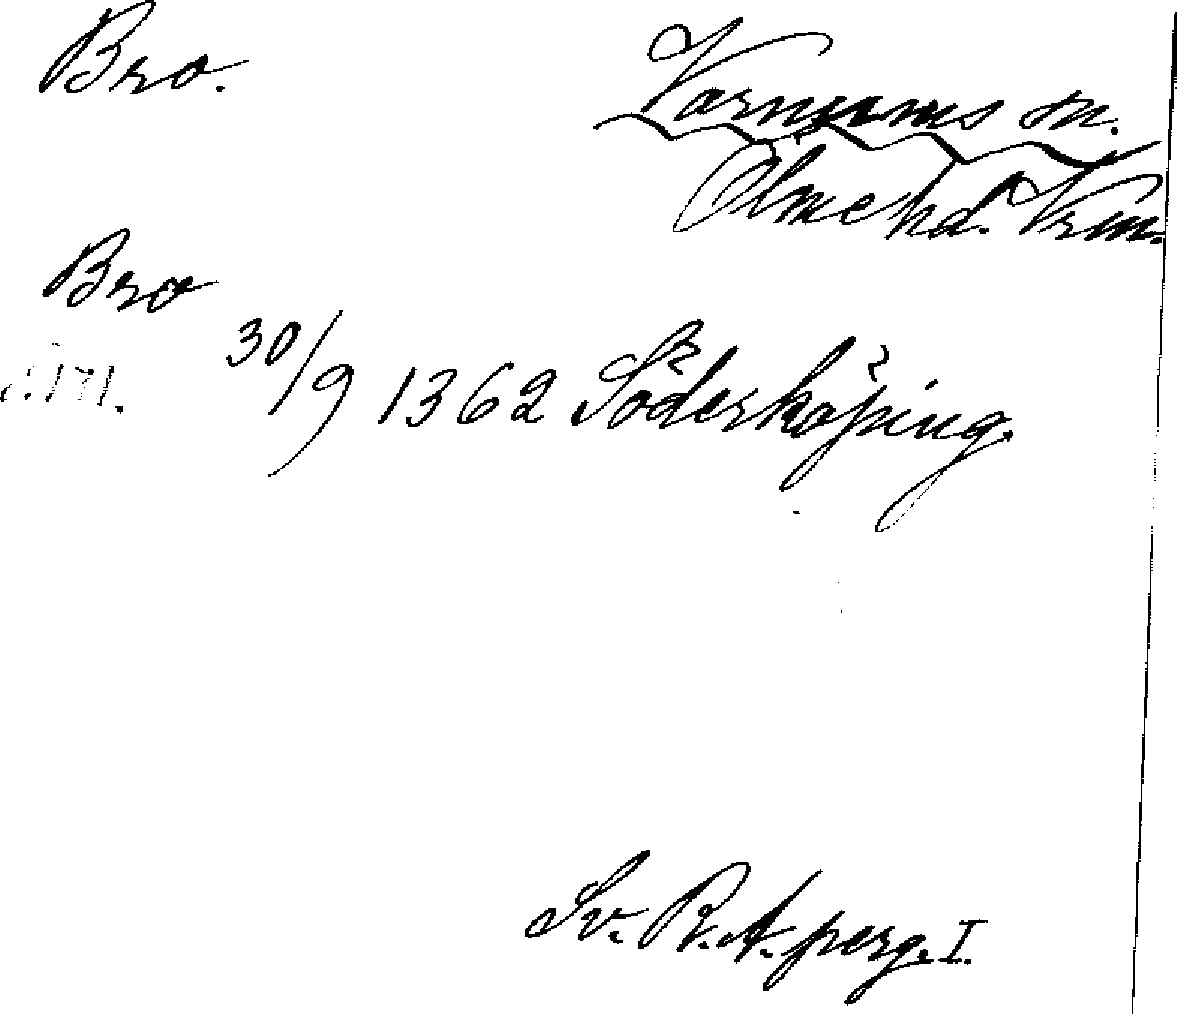 Bro. Varnums sn.
Ölme hd. Vrm.
Bro
30/9 1362 Söderköping.
Sv. R.A. perg. I.